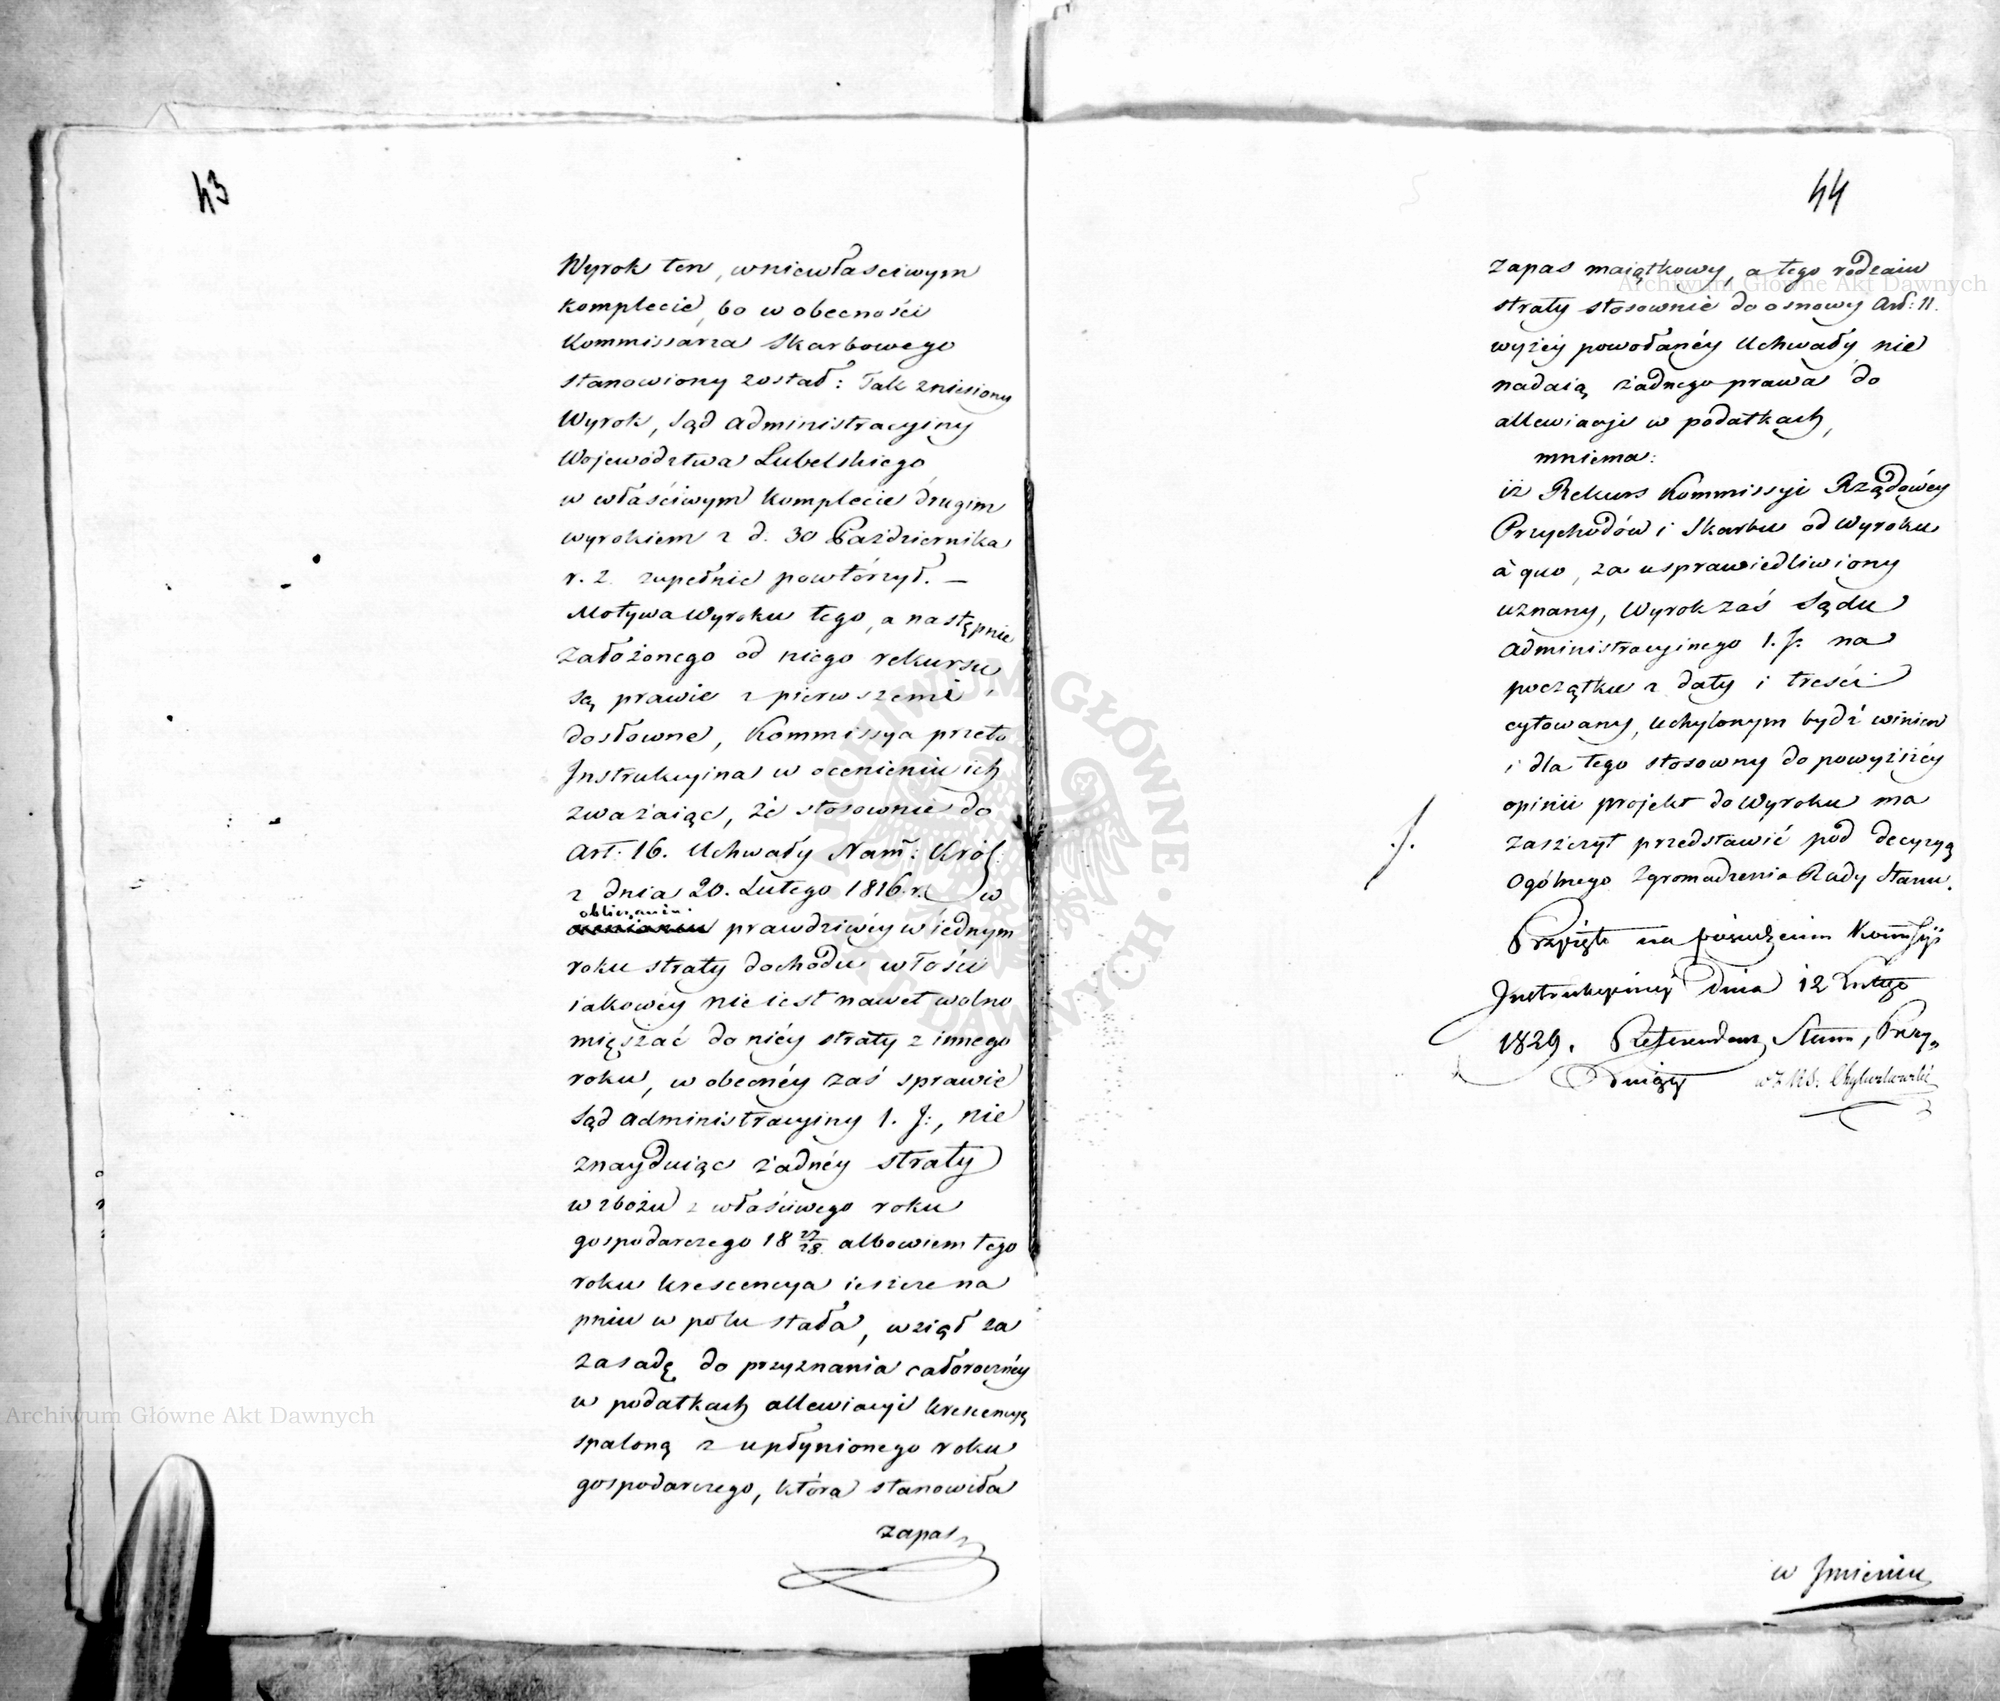 43
Wyrok ten, w niewłasciwym
komplecie, bo w obecności
Kommissarza Skarbowego
stanowiony został: Tak zniesiony
Wyrok, Sąd administracyiny
Województwa Lubelskiego
w właściwym Komplecie drugim
wyrokiem z d. 30 Października
r. z. zupełnie powtórzył. —
Motywa Wyroku tego, a następnie
założonego od niego rekursu
są prawie z pierwszemi
dosłowne, Kommissya przeto
Instrukcyina w ocenieniu ich
zważaiąc, że stosownie do
Art: 16. Uchwały Nam: Król:
z dnia 20. Lutego 1816. r. w
obliczaniu
prawdziwéy w iednym
roku straty dochodu włości
iakowéy nie iest nawet wolno
mięszać do niéy straty z innego
roku, w obecnéy zaś sprawie
Sąd administracyiny 1. J:, nie
znayduiąc żadnéy straty
w zbożu z właściwego roku
gospodarczego 18 27/28 albowiem tego
roku krescencya ieszcze na
pniu w polu stała, wziął za
zasadę do przyznania całorocznéy
w podatkach allewiacyi krescencyą
spaloną z upłynionego roku
gospodarczego, która stanowiła
zapas
44
zapas maiątkowy, a tego rodzaiu
straty stosownie do osnowy Art: 11.
wyżéy powołanéy Uchwały nie
nadaią żadnego prawa do
allewiacyi w podatkach,
mniema:
iż Rekurs Kommissyi Rządowéy
Przychodów i Skarbu od Wyroku
à quo, za usprawiedliwiony
uznany, Wyrok zaś Sądu
administracyinego 1. J. na
początku z daty i treści
cytowany, uchylonym bydź winien
i dla tego stosowny do powyższéy
opinii projekt do Wyroku ma
zaszczyt przedstawić pod decyzyą
Ogólnego Zgromadzenia Rady Stanu.
Przyięto na posiedzeniu Kommissyi
Instrukcyinéy dnia 12 Lutego
1829. Referendarz Stanu, Przy„
w Imieniu
Archiwum Główne Akt Dawnych
Archiwum Główne Akt Dawnych
ARCHIWUM GŁÓWNE AKT DAWNYCH